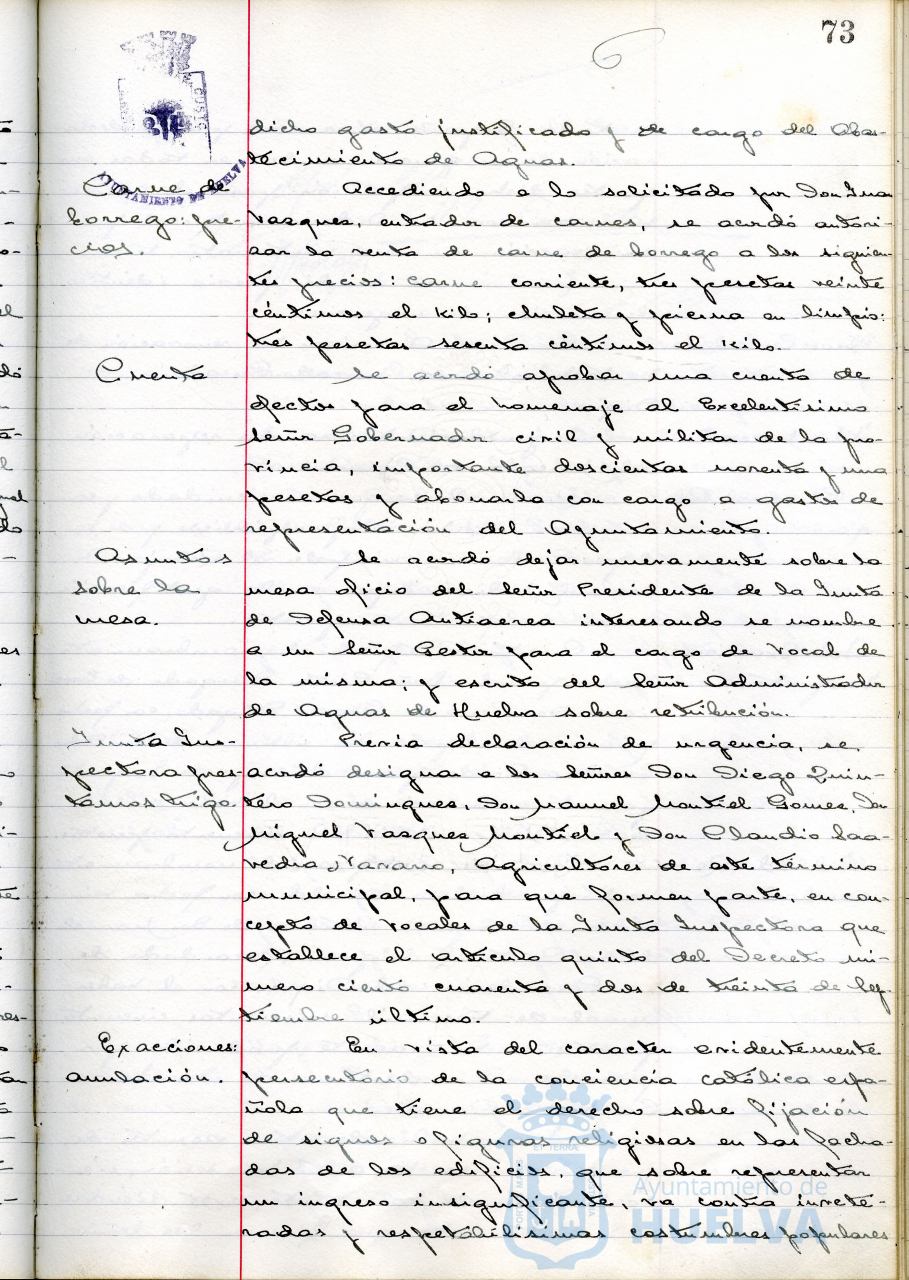 73
dicho gasto justificado y de cargo del Abas-
tecimiento de Aguas.
AYUNTAMIENTO DE HUELVA
Carne de
borrego: pre-
cios.
Accediendo a lo solicitado por Don Juan
Vasques, entrador de carnes, se acordó autori-
sar la venta de carne de borrego a los siguien-
tes precios: carne corriente, tres pesetas veinte
céntimos el kilo; chuleta y pierna en limpio:
tres pesetas sesenta céntimos el kilo.
Cuenta
Se acordó aprobar una cuenta de
efectos para el homenaje al Excelentísimo
Señor Gobernador civil y militar de la pro-
vincia, importante doscientas noventa y una
pesetas y abonarla con cargo a gastos de
representación del Ayuntamiento.
Asuntos
sobre la
mesa.
Se acordó dejar nuevamente sobre la
mesa oficio del Señor Presidente de la Junta
de Defensa Antiaerea interesando se nombre
a un Señor Gestor para el cargo de Vocal de
la misma; y escrito del Señor Administrador
de Aguas de Huelva sobre retribución.
Junta Ins-
pectora pres-
tamos trigo
Previa declaración de urgencia, se
acordó designar a los Señores Don Diego Quin-
tero Domingues, Don Manuel Montiel Gomes, Don
Miguel Vasques Montiel y Don Claudio Saa-
vedra Navarro, Agricultores de este término
municipal, para que formen parte, en con-
cepto de Vocales de la Junta Inspectora que
establece el artículo quinto del Decreto nú-
mero ciento cuarenta y dos de treinta de Sep-
tiembre último.
Exacciones:
anulación.
En vista del caracter evidentemente
persecutorio de la conciencia católica espa-
ñola que tiene el derecho sobre fijación
de signos o figuras religiosas en las facha-
das de los edificios, que sobre representar
un ingreso insignificante, va contra invete-
radas y respetabilísimas costumbres populares
Ayuntamiento de
HUELVA